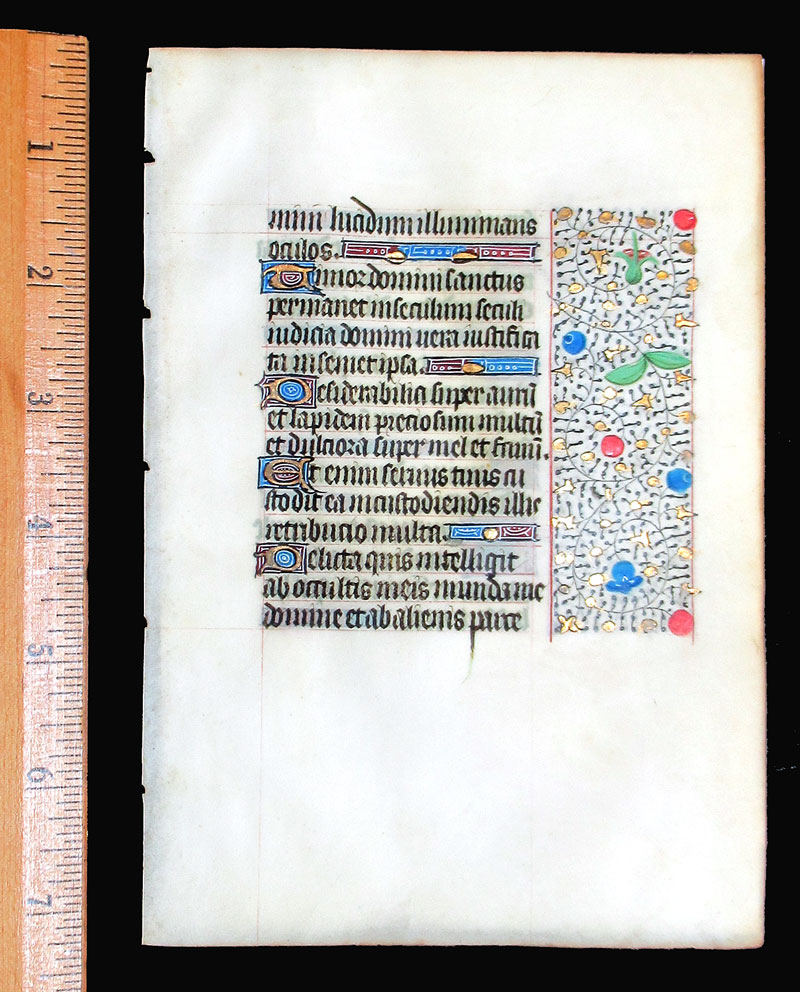 num lucidum illuminans
oculos.
Timor domini sanctus
permanet in seculum seculi
iudicia domini uera iustifica
ta in semetipsa.
Desiderabilia super aurū
et lapidem preciosum multū
et dulciora super mel et fauū.
Et enim seruus tuus cu
stodit ea in custodiendis illis
retribucio multa.
Delicta quis intelligit
ab occultis meis munda me
domine et ab alienis parce
1
2
3
4
5
6
7